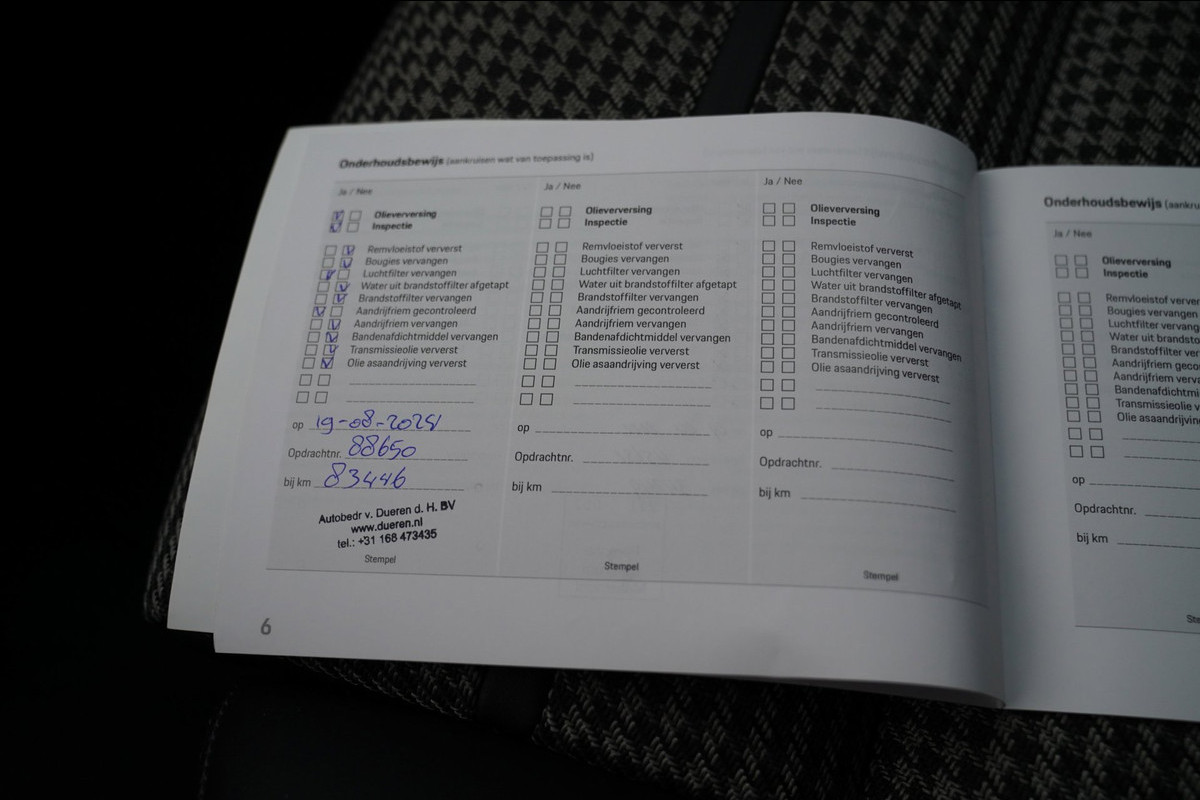 Onderhoudsbewijs (aankruisen wat van toepassing is)
Ja / Nee
Olieverversing
Inspectie
Remvloeistof ververst
Bougies vervangen
Luchtfilter vervangen
Water uit brandstoffilter afgetapt
Brandstoffilter vervangen
Aandrijfriem gecontroleerd
Aandrijfriem vervangen
Bandenafdichtmiddel vervangen
Transmissieolie ververst
Olie asaandrijving ververst
op 19-08-2024
Opdrachtnr. 88650
bij km 83446
Autobedr v. Dueren d. H. BV
www.dueren.nl
tel.: +31 168 473435
Stempel
Ja / Nee
Olieverversing
Inspectie
Remvloeistof ververst
Bougies vervangen
Luchtfilter vervangen
Water uit brandstoffilter afgetapt
Brandstoffilter vervangen
Aandrijfriem gecontroleerd
Aandrijfriem vervangen
Bandenafdichtmiddel vervangen
Transmissieolie ververst
Olie asaandrijving ververst
op
Opdrachtnr.
bij km
Stempel
Ja / Nee
Olieverversing
Inspectie
Remvloeistof ververst
Bougies vervangen
Luchtfilter vervangen
Water uit brandstoffilter afgetapt
Brandstoffilter vervangen
Aandrijfriem gecontroleerd
Aandrijfriem vervangen
Bandenafdichtmiddel vervangen
Transmissieolie ververst
Olie asaandrijving ververst
op
Opdrachtnr.
bij km
Stempel
6
Onderhoudsbewijs (aankru
Ja / Nee
Olieverversing
Inspectie
Remvloeistof ververs
Bougies vervangen
Luchtfilter vervange
Water uit brandsto
Brandstoffilter ver
Aandrijfriem geco
Aandrijfriem verva
Bandenafdichtmi
Transmissieolie v
Olie asaandrijvin
op
Opdrachtnr.
bij km
Ste